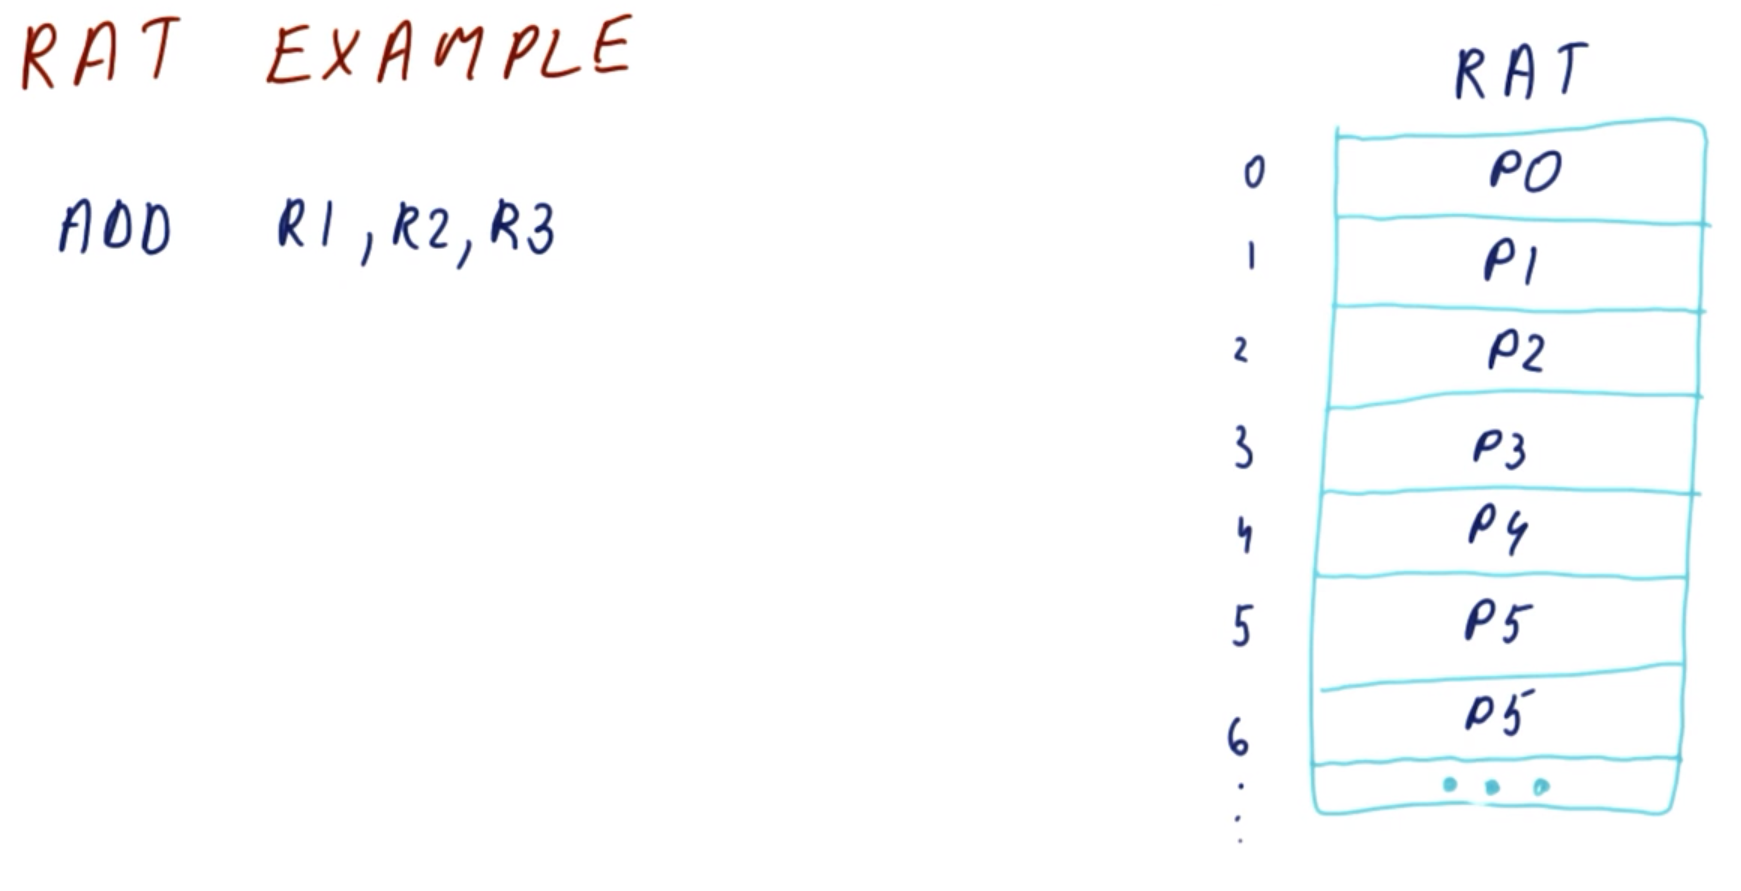 RAT EXAMPLE
ADD R1, R2, R3
RAT
0 P0
1 P1
2 P2
3 P3
4 P4
5 P5
6 P5